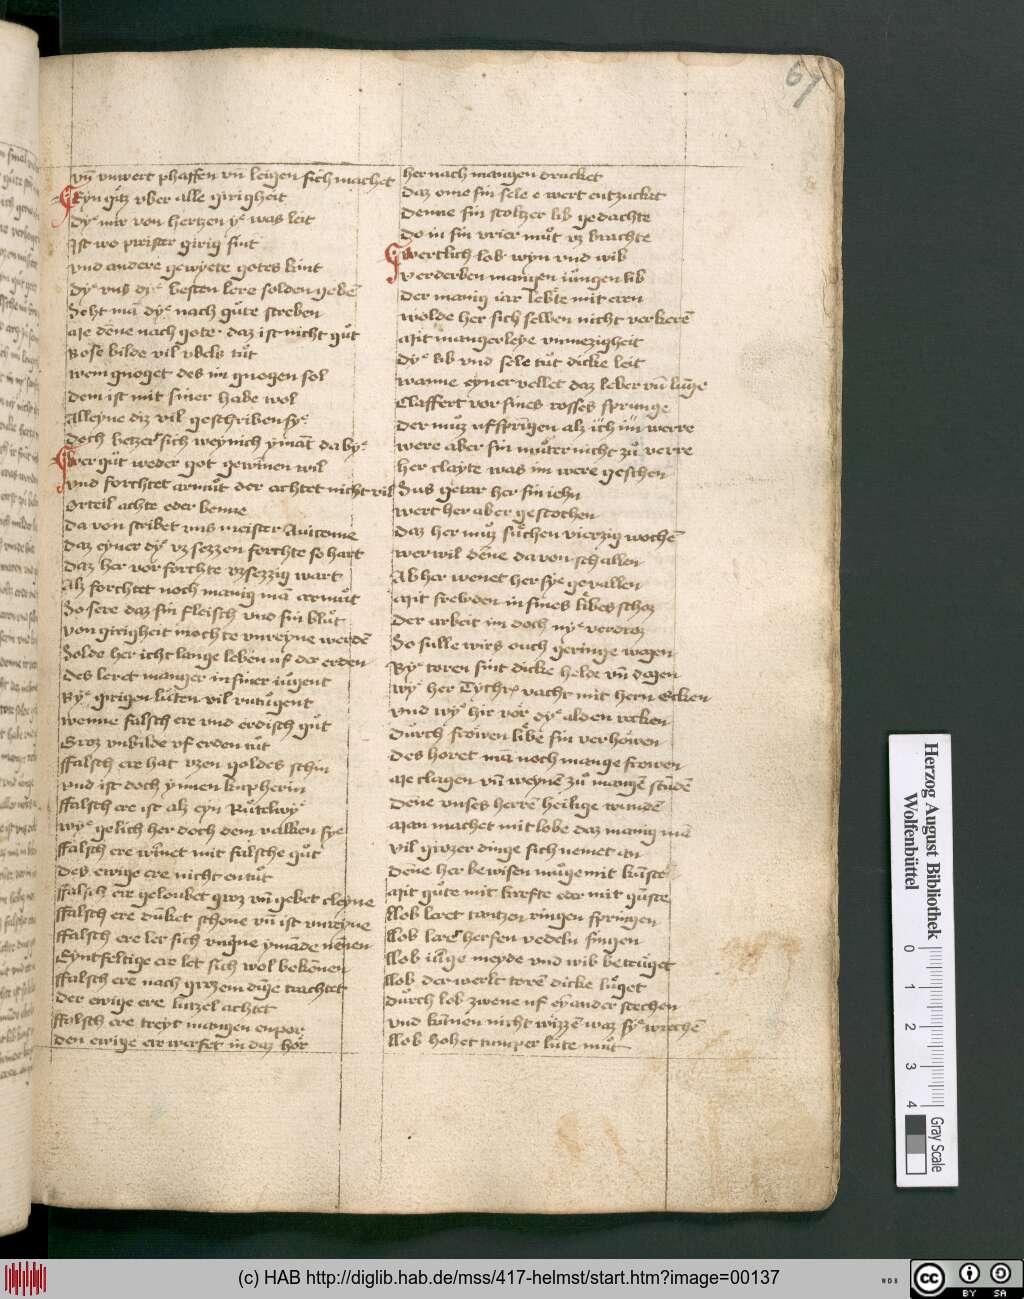 67
vn̄ vnwert phaffen vn̄ leẏen sich machet
Keyn gitz vber alle girigheit
Dyͤ mir von hertzen yͤ was leit
Ist wo prister girig sint
vnd andere gewyete gotes kint
Dyͤ vns dyͤ besten lere solden gebē
Seht mā dyͤ nach gůte streben
Me dēne nach gote daz ist nicht gůt
Bose bilde vil vbels tůt
wem gnoget des im gnogen sol
Dem ist mit siner habe wol
Alleyne diz vil geschriben syͤ
Doch betzert sich weynich ymāt da byͤ
wer gůt weder got gewinen wil
vnd forchtet armůt der achtet nicht vil
Orteil achte oder benne
Da von scribet vns meister Auicenne
Daz eyner dyͤ vz sezzen forchte so hart
Daz her vor forchte vzsezzig wart
Alz forchtet noch manig mā armůt
So sere daz sin fleisch vnd sin blůt
von girigheit mochte vnreyne werdē
Solde her icht lange leben uf der erden
Des leret manger in siner iugent
Byͤ girigen luten vil vntugent
wenne falsch ere vnd erdisch gůt
Groz vnbilde vf erden tůt
ffalsch ere hat vzen goldes schin
vnd ist doch ynnen kupherin
ffalsch ere ist alz eyn Růtelwyͤ
wyͤ gelich her doch dem valken sye
ffalsch ere winet mit falsche gůt
Das ewige ere nicht entůt
ffalsch ere geloubet groz vn̄ gebet cleyne
ffalsch ere dunket schone vn̄ ist vnreyne
ffalsch ere ler sich vngne ymāde nēnen
Eyntfeltige ere let sich wol bekēnen
ffalsch ere nach grozem dinge trachtet
Der ewige ere lutzel achtet
ffalsch ere treyt mangen enpor
Den ewige ere werfet in daz hor
her nach mangen drucket
Daz ome sin sele e wert entzucket
Denne sin stoltzer lib gedachte
Do in sin vrier můt vz brachte
wertlich lob wyn vnd wib
verderben mangen iungen lib
Der manig iar lebte mit ern
wolde her sich selben nicht verkerē
Mit mangerleye vnmezigheit
Dyͤ lib vnd sele tůt dicke leit
wanne eyner vellet daz leber vn̄ lunge
Claffert vor sines rosses sprunge
Der můz uf springen alz ich im werre
were aber sin můter nicht zů verre
her clayte was im were geschen
Sus getar her sin iehn
wert her aber gestochen
Daz her můz sůchen vierzig wochē
wer wil dēne da von schallen
Ab her wenet her syͤ gevallen
Mit frewden in sines libes schoz
Der arbeit im doch nyͤ verdroz
So sulle wirs ouch geringe wegen
Byͤ toren sint dicke helde vn̄ degen
wyͤ her Dythͤ vacht mit hern Ecken
vnd wyͤ hie vor dyͤ alden recken
Durch frowen libe sin verhowen
Des horet mā noch mange frowen
Me clagen vn̄ weynē zů mangē stundē
Dēne vnses herrē heilige wundē
Man machet mit lobe daz manig mā
vil grozer dinge sich nemet an
Dēne her bewisen muge mit kunste
Mit gůte mit krefte oder mit gunste
llob leret tantzen ringen springen
llob lert herfen vedeln singen
llob iunge meyde vnd wib betruget
llob der werlt torē dicke luget
Durch lob zwene uf eynander stechen
vnd kunen nicht wizzē waz syͤ wrechē
llob hohet tumper lute můt
Herzog August Bibliothek
Wolfenbüttel
0 1 2 3 4
Gray Scale
(c) HAB http://diglib.hab.de/mss/417-helmst/start.htm?image=00137
WDB
cc BY SA